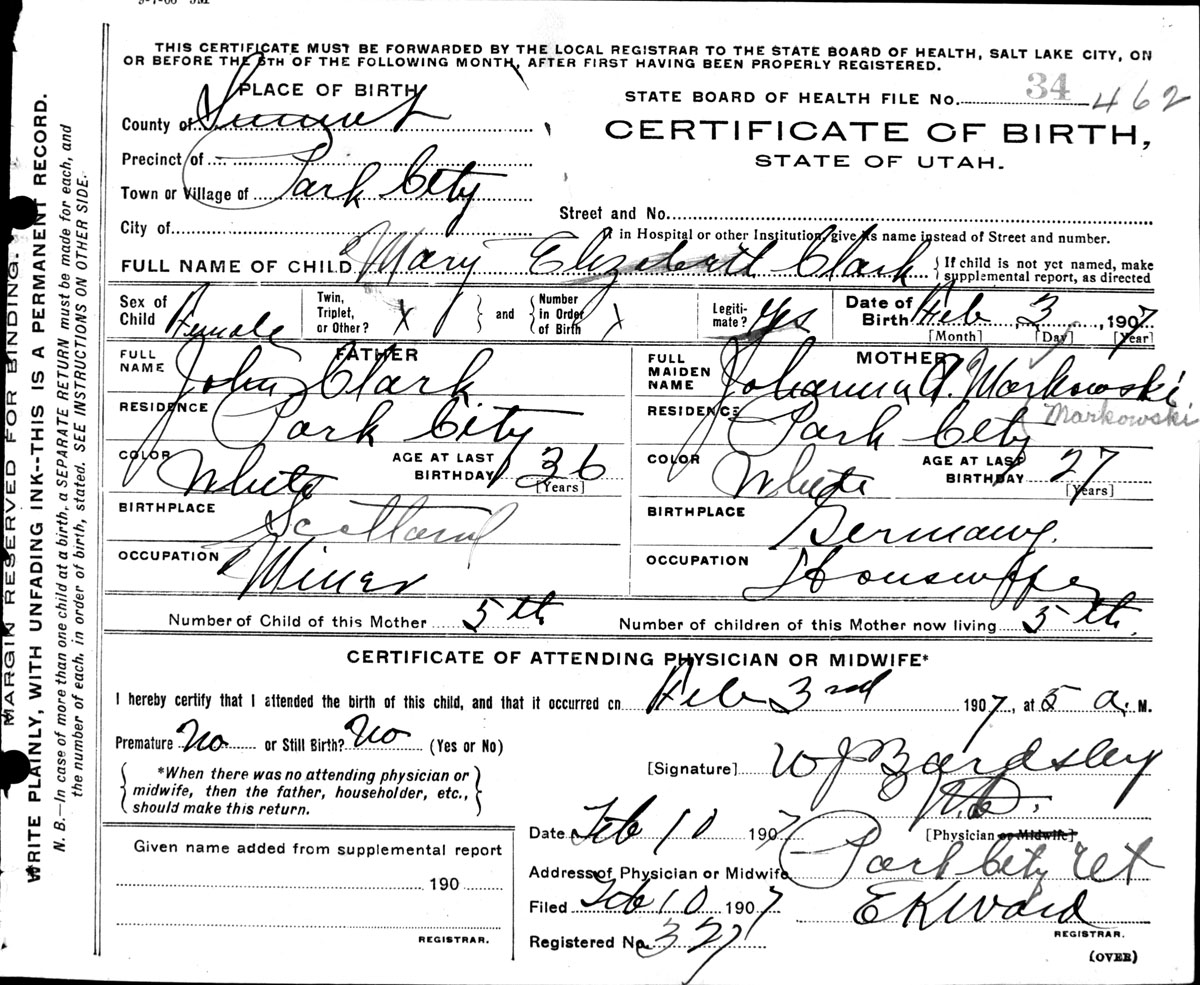 THIS CERTIFICATE MUST BE FORWARDED BY THE LOCAL REGISTRAR TO THE STATE BOARD OF HEALTH, SALT LAKE CITY, ON
OR BEFORE THE 5TH OF THE FOLLOWING MONTH, AFTER FIRST HAVING BEEN PROPERLY REGISTERED.
PLACE OF BIRTH
STATE BOARD OF HEALTH FILE No. 34 - 462
County of Summit
CERTIFICATE OF BIRTH,
STATE OF UTAH.
Precinct of
Town or Village of Park City
Street and No.
City of
If in Hospital or other Institution, give its name instead of Street and number.
FULL NAME OF CHILD Mary Elizabeth Clark { If child is not yet named, make
supplemental report, as directed
Sex of Child Female
Twin, Triplet, or Other? X } and { Number in Order of Birth X
Legitimate? Yes
Date of Birth Feb 3, 1907
[Month] [Day] [Year]
FATHER
FULL NAME John Clark
RESIDENCE Park City
COLOR White AGE AT LAST BIRTHDAY 36 [Years]
BIRTHPLACE Scotland
OCCUPATION Miner
MOTHER
FULL MAIDEN NAME Johanna A. Markowski
RESIDENCE Park City Markowski
COLOR White AGE AT LAST BIRTHDAY 27 [Years]
BIRTHPLACE Germany.
OCCUPATION Housewife
Number of Child of this Mother 5th Number of children of this Mother now living 5th.
CERTIFICATE OF ATTENDING PHYSICIAN OR MIDWIFE*
I hereby certify that I attended the birth of this child, and that it occurred on Feb 3rd 1907, at 5 a. M.
Premature No or Still Birth? No (Yes or No)
{ *When there was no attending physician or
midwife, then the father, householder, etc.,
should make this return. }
[Signature] W J Bardsley
M.D.
[Physician or Midwife]
Date Feb 10 1907
Address of Physician or Midwife Park City Ut
Filed Feb 10 1907 E K Ward
REGISTRAR.
Registered No. 327
(OVER)
Given name added from supplemental report
190
REGISTRAR.
MARGIN RESERVED FOR BINDING.
WRITE PLAINLY, WITH UNFADING INK--THIS IS A PERMANENT RECORD.
N. B.—In case of more than one child at a birth, a SEPARATE RETURN must be made for each, and
the number of each, in order of birth, stated. SEE INSTRUCTIONS ON OTHER SIDE.